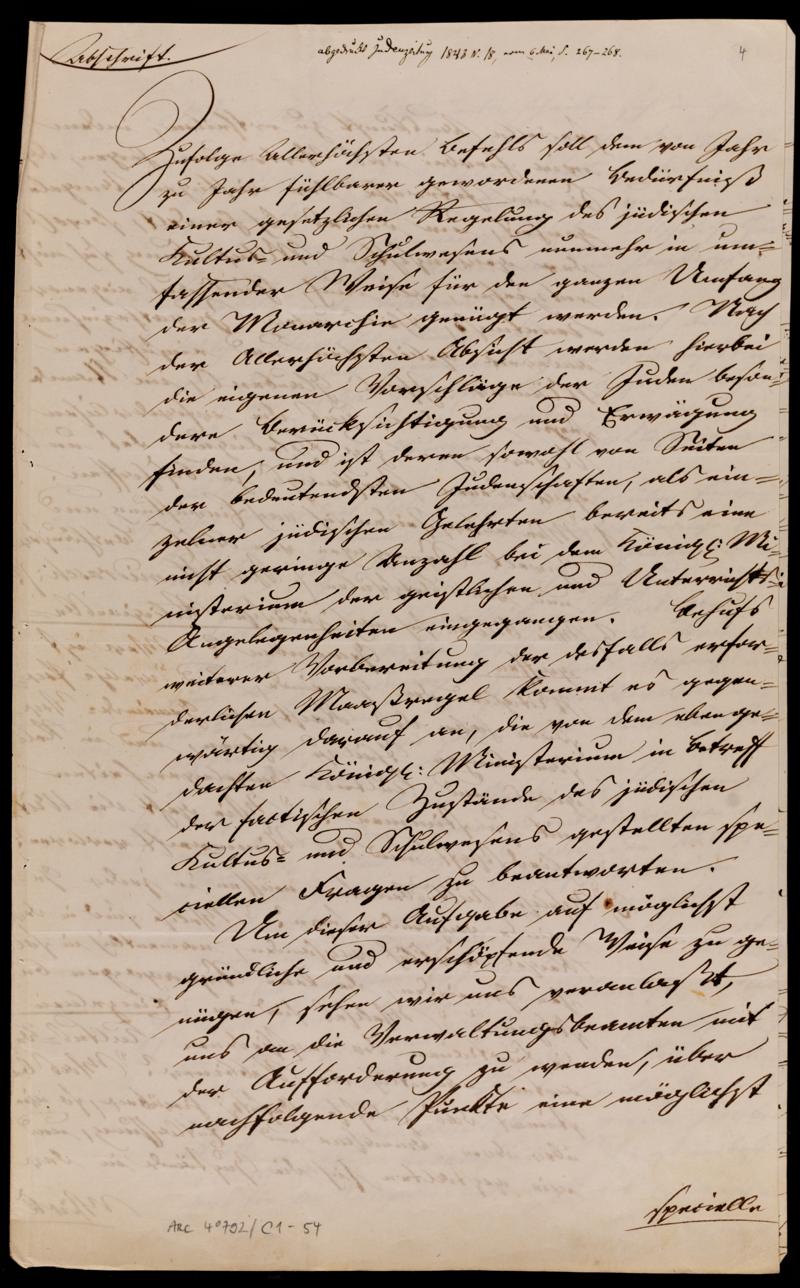 Abschrift.
abgedruckt Judenzeitung 1843 N. 18, vom 6 Mai, S. 267-268.
4
Zufolge Allerhöchsten Befehls soll dem von Jahr
zu Jahr fühlbarer gewordenen Bedürfniß
einer gesetzlichen Regelung des jüdischen
Kultus- und Schulwesens nunmehr in um=
fassender Weise für den ganzen Umfang
der Monarchie genügt werden. Nach
der Allerhöchsten Absicht werden hierbei
die eigenen Vorschläge der Juden beson=
dere Berücksichtigung und Erwägung
finden, und ist deren sowohl von Seiten
der bedeutendsten Judenschaften, als ein=
zelner jüdischen Gelehrten bereits eine
nicht geringe Anzahl bei dem Königl: Mi=
nisterium der geistlichen und Unterrichts=
Angelegenheiten eingegangen. Behufs
weiterer Vorbereitung der desfalls erfor=
derlichen Maaßregel kommt es gegen=
wärtig darauf an, die von dem ebenge=
dachten Königl: Ministerium in Betreff
der factischen Zustände des jüdischen
Kultus= und Schulwesens gestellten spe=
ciellen Fragen zu beantworten.
Um dieser Aufgabe auf möglichst
gründliche und erschöpfende Weise zu ge=
nügen, sehen wir uns veranlaßt,
uns an die Verwaltungsbeamten mit
der Aufforderung zu wenden, über
nachfolgende Punkte eine möglichst
specielle
ARC 4°792/C1-54